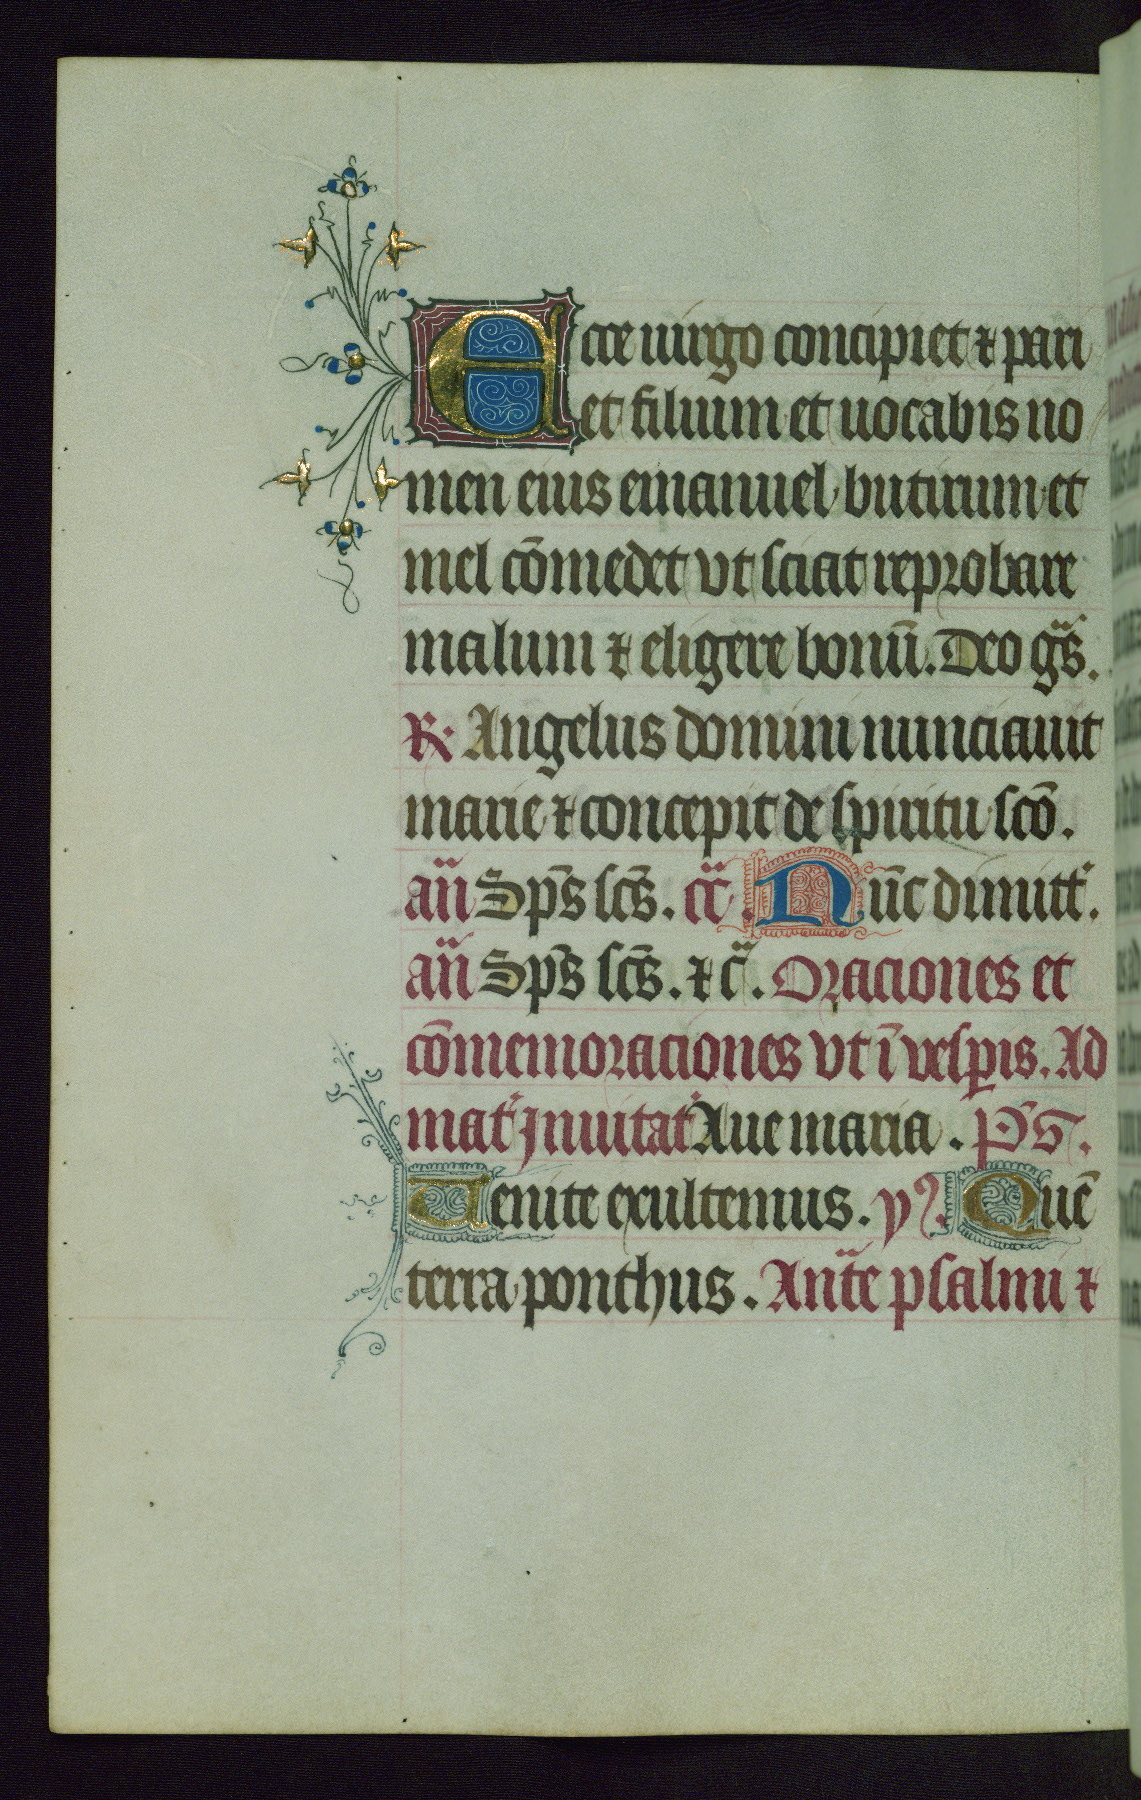 Ecce uirgo concipiet ⁊ pari
et filium et uocabis no
men eius emanuel butirum et
mel cōmedet vt sciat reprobare
malum ⁊ eligere bonū. Deo gr̄s.
R. Angelus domini nunciauit
marie ⁊ concepit de spiritu scō.
an̄ Sp̄s sc̄s. cc̄. Nūc dimitt.
an̄ Sp̄s sc̄s. ⁊ c̄. Oraciones et
cōmemoraciones vt ī vesꝑis. Ad
mat' Inuitat' Aue maria. Ps.
Uenite exultemus. ym̄. Quē
terra ponthus. Ant̄e psalmi ⁊